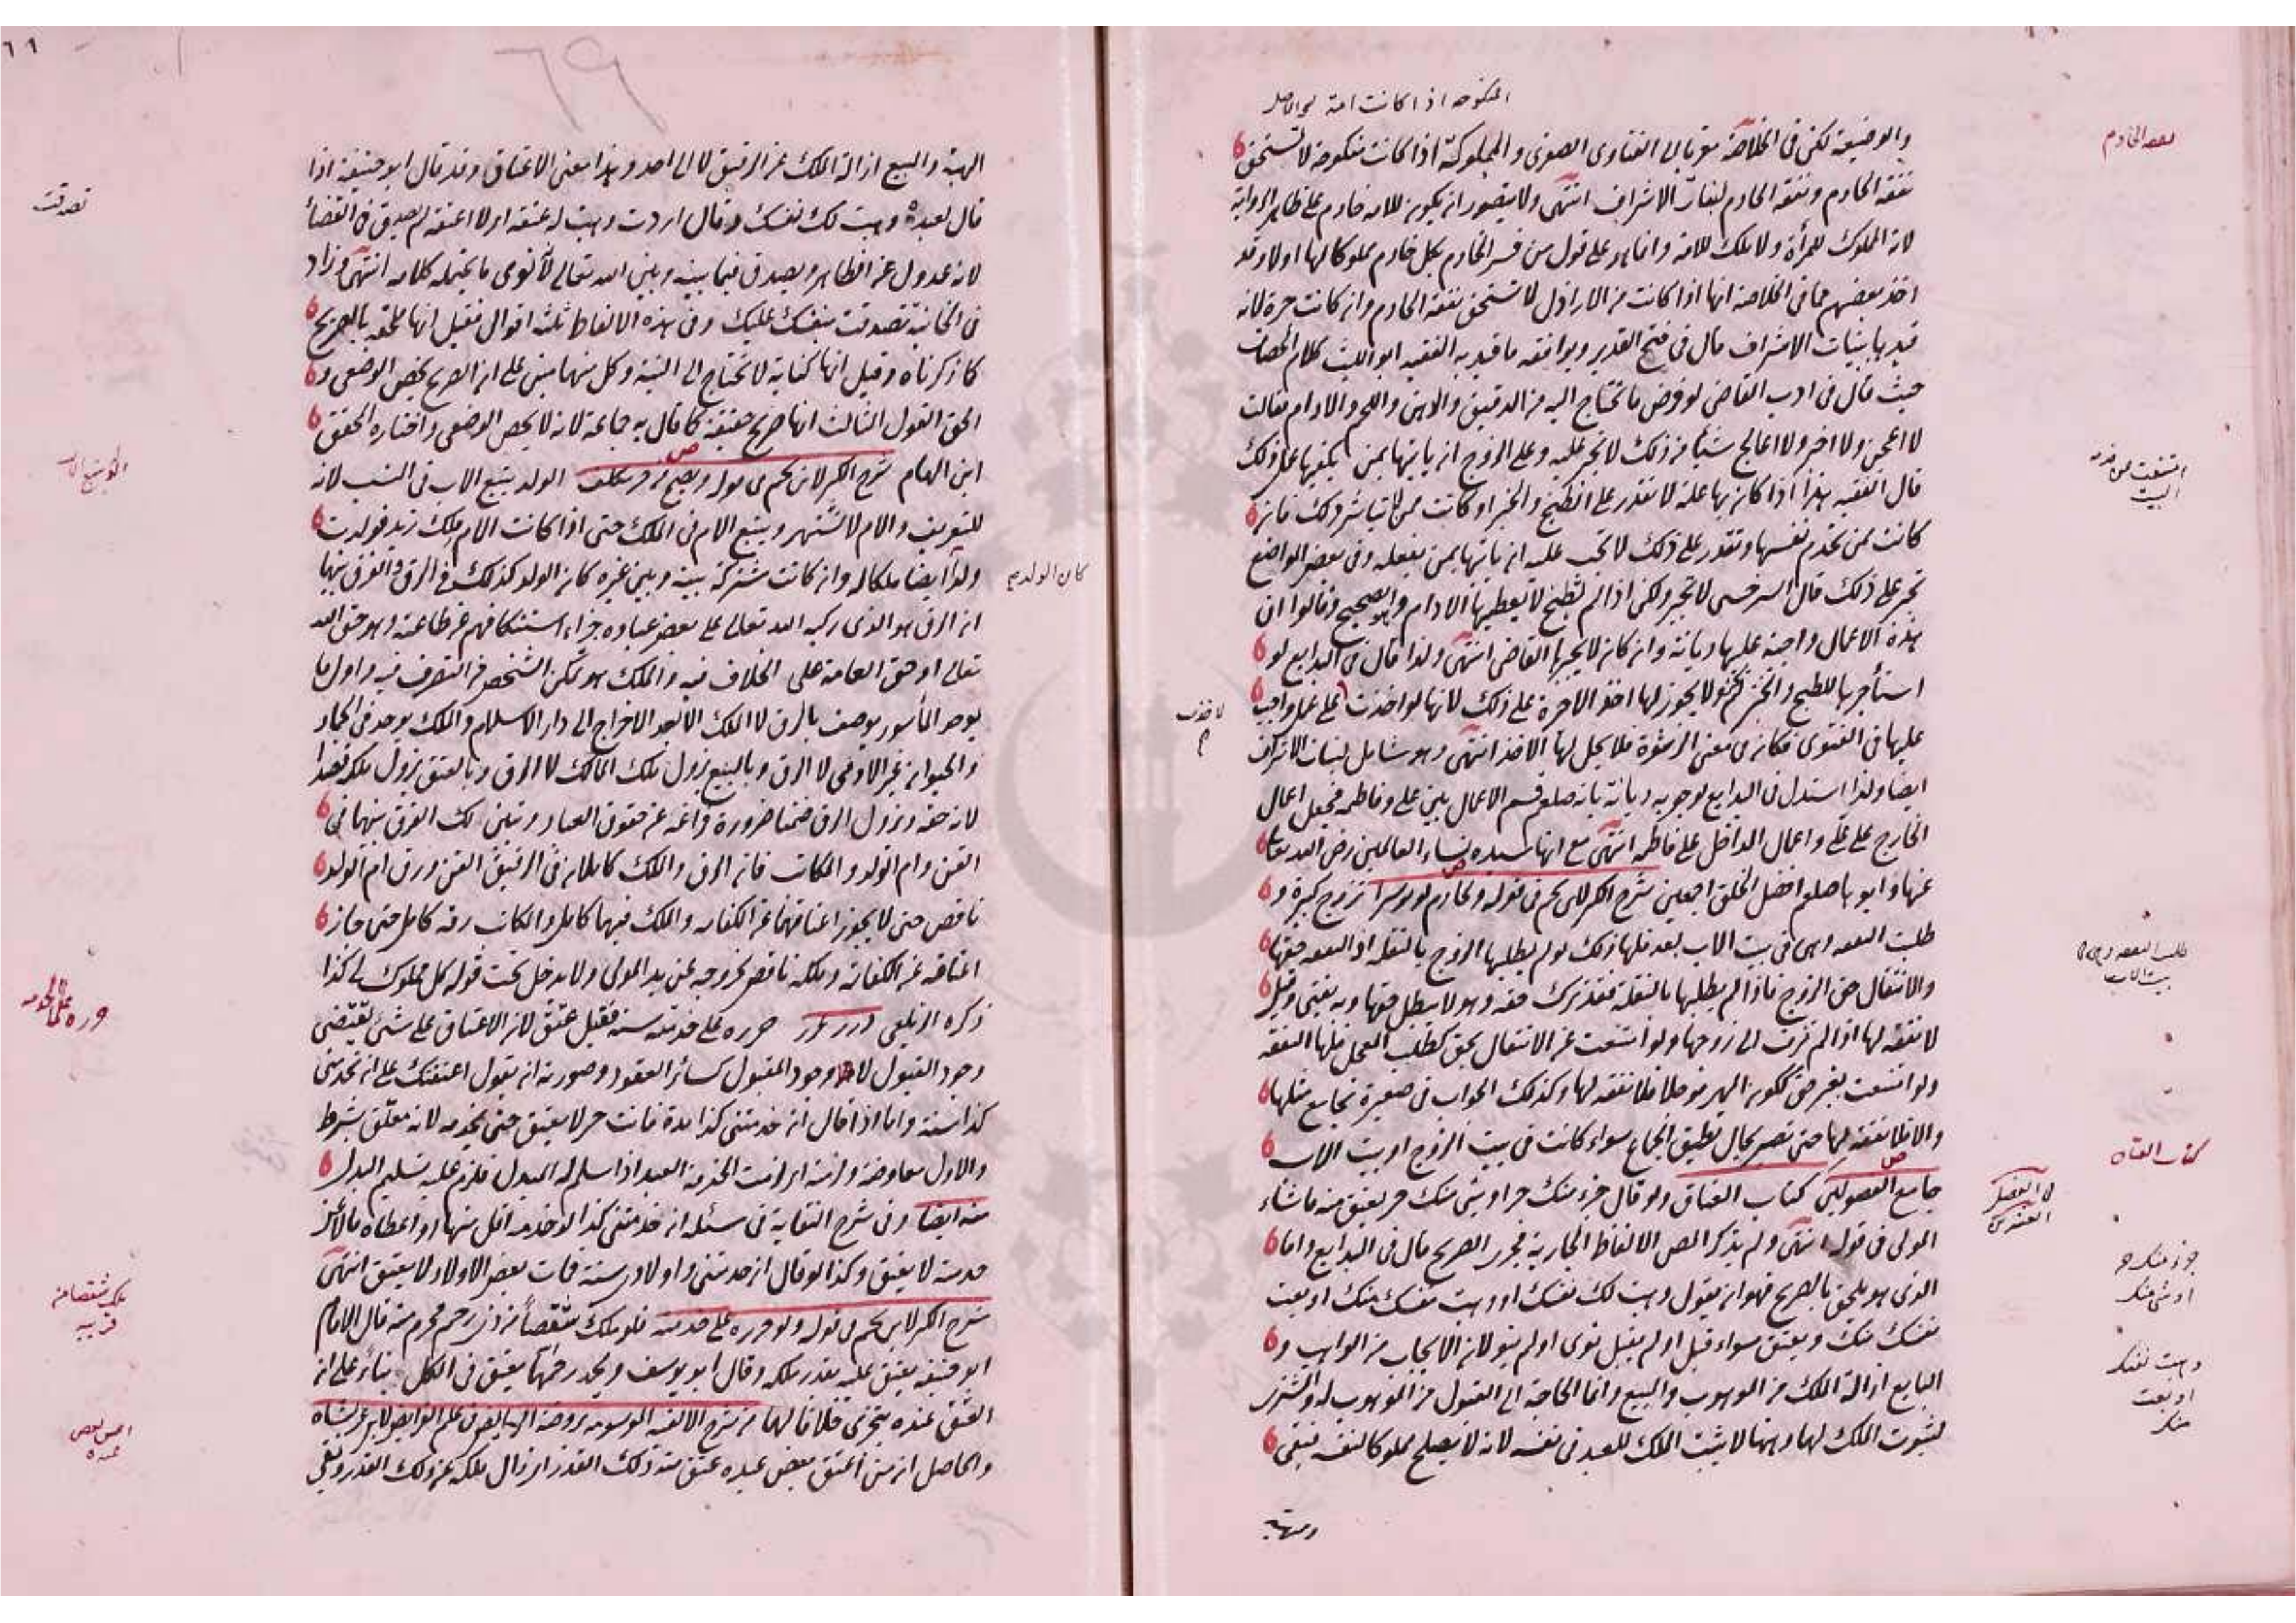 المنكوحة اذا كانت امة
والوضيعة لكن في الخلاصة معزيا الى الفتاوى الصغرى والمملوكة اذا كانت منكوحة لا تستحق
نفقة الخادم ونفقة الخادم لبنات الاشراف انتهى ولا يتصور ان يكون للامة خادم على ظاهر الرواية
لانه المملوك للمرأة ولا ملك للامة وانما هو على قول من فسر الخادم بكل خادم مملوكا لها اولا وقد
اخذ بعضهم مما في الخلاصة انها اذا كانت من الاراذل لا تستحق نفقة الخادم وان كانت حرة لانه
قيدها ببنات الاشراف قال في فتح القدير ويوافقه ما قيد به الفقيه ابو الليث كلام الخصاف
حيث قال في ادب القاضي لو فرض ما تحتاج اليه من الدقيق والدهن واللحم والادام فقالت
لا اعجن ولا اخبز ولا اعالج شيأ من ذلك لا تجبر عليه وعلى الزوج ان يأتيها بمن يكفيها عمل ذلك
قال الفقيه هذا اذا كان بها علة لا تقدر على الطبخ والخبز او كانت ممن لا تباشر ذلك فان
كانت ممن تخدم نفسها وتقدر على ذلك لا يجب عليه ان يأتيها بمن يفعله وفي بعض المواضع
تجبر على ذلك قال السرخسي لا تجبر ولكن اذا لم تطبخ لا يعطيها الادام وهو الصحيح وقالوا ان
هذه الاعمال واجبة عليها ديانة وان كان لا يجبرها القاضي انتهى ولذا قال في البدايع لو
استأجرها للطبخ والخبز لم يجز ولا يجوز لها اخذ الاجرة على ذلك لانها لو اخذت على عمل واجب
عليها في الفتوى فكان في معنى الرشوة فلا يحل لها الاخذ انتهى وهو شامل لبنات الاشراف
ايضا ولذا استدل في البدايع لوجوبه ديانة بانه صلعم قسم الاعمال بين علي وفاطمة فجعل اعمال
الخارج على علي واعمال الداخل على فاطمة انتهى مع انها سيدة نساء العالمين رضي الله تعالى
عنها وابوها صلعم افضل الخلق اجمعين شرح الكنز لابن نجم في قوله ولخادم لو موسرا تزوج كبيرة و
طلبت النفقة وهي في بيت الاب بعد فلها ذلك لو لم يطلبها الزوج بالنقلة اذ النفقة حقها
والانتقال حق الزوج فاذا لم يطلبها بالنقلة فقد ترك حقه وهو لا يبطل حقها وبه يفتى وقيل
لا نفقة لها اذا لم تزف الى زوجها ولو امتنعت عن الانتقال بحق كطلب المعجل فلها النفقة
ولو امتنعت بغير حق ككون المهر مؤجلا فلا نفقة لها وكذلك الجواب في صغيرة تجامع مثلها
والا فلا نفقة لها حتى تصير بحال تطيق الجماع سواء كانت في بيت الزوج او بيت الاب
جامع الفصولين كتاب العتاق ولو قال جزء منك حر او شئ منك حر يعتق منه ما شاء
المولى في قوله انتهى ولم يذكر المص الالفاظ الجارية مجرى الصريح قال في البدايع واما
الذي هو يلحق بالصريح فهو ان يقول وهبت لك نفسك او وهبت نفسك منك او بعت
نفسك منك ويعتق سواء قبل او لم يقبل نوى او لم ينو لان الايجاب من الواهب و
البايع ازالة الملك من الموهوب والمبيع وانما الحاجة الى القبول من الموهوب له والمشترى
لثبوت الملك لهما وههنا لا يثبت الملك للعبد في نفسه لانه لا يصلح مملوكا لنفسه فبقي
كتاب العتاق
جزء منك حر
او شئ منك
وهبت نفسك
او بعت
منك
امتنعت من خدمة
البيت
طلبت النفقة وهي في
بيت الاب
٦٩
الهبة والبيع ازالة الملك عن الرقيق لا الى احد وهذا معنى الاعتاق وقد قال ابو حنيفة اذا
قال لعبده وهبت لك نفسك وقال اردت وهبت له عتقه او لا اعتقه لم يصدق في القضاء
لانه عدول عن الظاهر ويصدق فيما بينه وبين الله تعالى لأنه نوى ما يحتمله كلامه انتهى وزاد
في الخانية تصدقت بنفسك عليك وفي هذه الالفاظ ثلثة اقوال فقيل انها ملحقة بالصريح
كما ذكرناه وقيل انها كناية لا تحتاج الى النية وكل منهما مبني على ان الصريح يخص الوضعي و
الحق القول الثالث انها صريح حقيقة كما قال به جماعة لانه لا يخص الوضعي واختاره المحقق
ابن الهمام شرح الكنز لابن نجم في قوله ويصح من حر مكلف الولد يتبع الاب في النسب لانه
للتعريف والام لا تشتهر ويتبع الام في الملك حتى اذا كانت الام ملك زيد فولدت
ولدا ايضا ملكا له وان كانت مشتركة بينه وبين غيره كان الولد كذلك في الرق والفرق بينهما
ان الرق هو الذي ركبه الله تعالى على بعض عباده جزاء استنكافهم عن طاعته وهو حق الله
تعالى او حق العامة على الخلاف فيه والملك هو تمكن الشخص من التصرف فيه واول ما
يوجد المأسور يوصف بالرق لا الملك الا بعد الاخراج الى دار الاسلام والملك يوجد في الجماد
والحيوان غير الادمي لا الرق وبالبيع يزول ملك المالك لا الرق وبالعتق يزول ملكه قصدا
لانه حقه ويزول الرق ضمنا ضرورة فراغه عن حقوق العباد ويتبين لك الفرق بينهما في
القن وام الولد والمكاتب فان الرق والملك كاملان في الرقيق القن ورق ام الولد
ناقص حتى لا يجوز اعتاقهما عن الكفارة والملك فيها كامل والمكاتب رقه كامل حتى جاز
اعتاقه عن الكفارة وملكه ناقص لخروجه عن يد المولى ولا يدخل تحت قوله كل مملوك لي كذا
ذكره الزيلعي درر غرر حرره على خدمته سنة فقبل عتق لان الاعتاق على شئ يقتضي
وجود القبول لا وجود المقبول كسائر العقود وصورته ان يقول اعتقتك على ان تخدمني
كذا سنة واما اذا قال ان خدمتني كذا مدة فانت حر لا يعتق حتى يخدمه لانه معلق بشرط
والاول معاوضة ولزمته اي لزمت الخدمة العبد اذا سلم له المبدل فلزم عليه تسليم البدل
منه ايضا وفي شرح النقاية في مسئلة ان خدمتني كذا لو خدمه اقل منها او اعطاه مالا عن
خدمته لا يعتق وكذا لو قال ان خدمتني واولادي سنة فمات بعض الاولاد لا يعتق انتهى
شرح الكنز لابن نجم في قوله ولو حرره على خدمته فلو ملك شقصا من ذي رحم محرم منه قال الامام
ابو حنيفة يعتق عليه بقدر ملكه وقال ابو يوسف ومحمد رحمهما يعتق في الكل بناء على ان
العتق عنده يتجزى خلافا لهما من شرح الالفية الموسومة
والحاصل ان من اعتق بعض عبده عتق منه ذلك القدر اي زال ملكه عن ذلك القدر وبقي
كان الولد
تصدقت
ملك شقصا من
قريبه